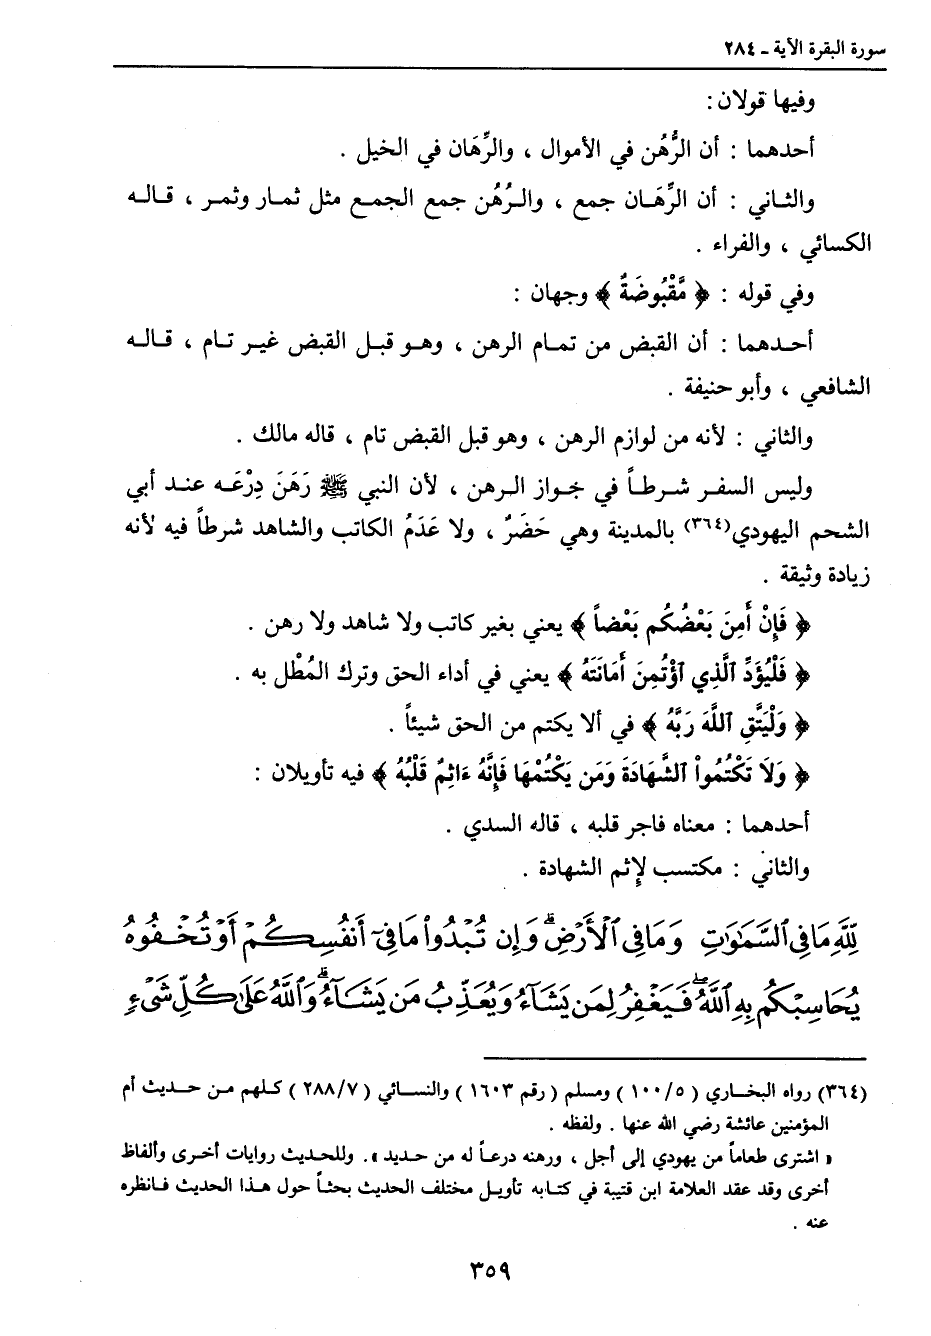 سورة البقرة الآية ـ ٢٨٤
وفيها قولان :
أحدهما : أن الرُّهُن في الأموال ، والرِّهَان في الخيل .
والثـاني : أن الرِّهَـان جمع ، والـرُهُن جمع الجمـع مثل ثمـار وثمـر ، قـالـه
الكسائي ، والفراء .
وفي قوله : ﴿ مَّقْبُوضَةٌ ﴾ وجهان :
أحـدهمـا : أن القبض من تمـام الرهن ، وهـو قبـل القبض غيـر تـام ، قـالـه
الشافعي ، وأبو حنيفة .
والثاني : لأنه من لوازم الرهن ، وهو قبل القبض تام ، قاله مالك .
وليس السفـر شـرطـاً في جـواز الـرهن ، لأن النبي ﷺ رَهَنَ دِرْعَـه عنـد أبي
الشحم اليهودي(٣٦٤) بالمدينة وهي حَضَرٌ ، ولا عَدَمُ الكاتب والشاهد شرطاً فيه لأنه
زيادة وثيقة .
﴿ فَإِنْ أَمِنَ بَعْضُكُم بَعْضاً ﴾ يعني بغير كاتب ولا شاهد ولا رهن .
﴿ فَلْيُؤَدِّ ٱلَّذِي ٱؤْتُمِنَ أَمَانَتَهُ ﴾ يعني في أداء الحق وترك المُطْل به .
﴿ وَلْيَتَّقِ ٱللَّهَ رَبَّهُ ﴾ في ألا يكتم من الحق شيئاً .
﴿ وَلَا تَكْتُمُواْ ٱلشَّهَادَةَ وَمَن يَكْتُمْهَا فَإِنَّهُ ءَاثِمٌ قَلْبُهُ ﴾ فيه تأويلان :
أحدهما : معناه فاجر قلبه ، قاله السدي .
والثاني : مكتسب لإثم الشهادة .
لِلَّهِ مَا فِي ٱلسَّمَٰوَٰتِ وَمَا فِي ٱلْأَرْضِ ۗ وَإِن تُبْدُواْ مَا فِيٓ أَنفُسِكُمْ أَوْ تُخْفُوهُ
يُحَاسِبْكُم بِهِ ٱللَّهُ ۖ فَيَغْفِرُ لِمَن يَشَآءُ وَيُعَذِّبُ مَن يَشَآءُ ۗ وَٱللَّهُ عَلَىٰ كُلِّ شَيْءٍ
(٣٦٤) رواه البخـاري ( ١٠٠/٥ ) ومسلم ( رقم ١٦٠٣ ) والنسـائي ( ٢٨٨/٧ ) كـلهم مـن حـديث أم
المؤمنين عائشة رضي الله عنها . ولفظه .
« اشترى طعاماً من يهودي إلى أجل ، ورهنه درعـاً له من حـديد » . وللحـديث روايات أخـرى وألفاظ
أخرى وقد عقد العلامة ابن قتيبة في كتـابه تأويـل مختلف الحديث بحثـاً حول هـذا الحديث فـانظره
عنه .
٣٥٩